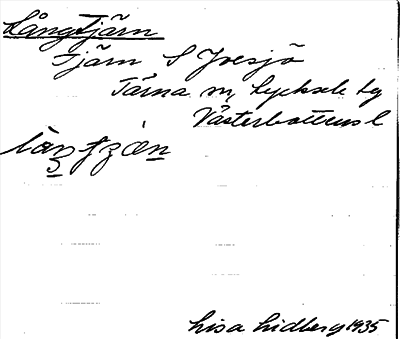 Långtjärn
Tjärn S Joesjö
Tärna sn, Lycksele lg
Västerbottens l
Lisa Lidberg 1935